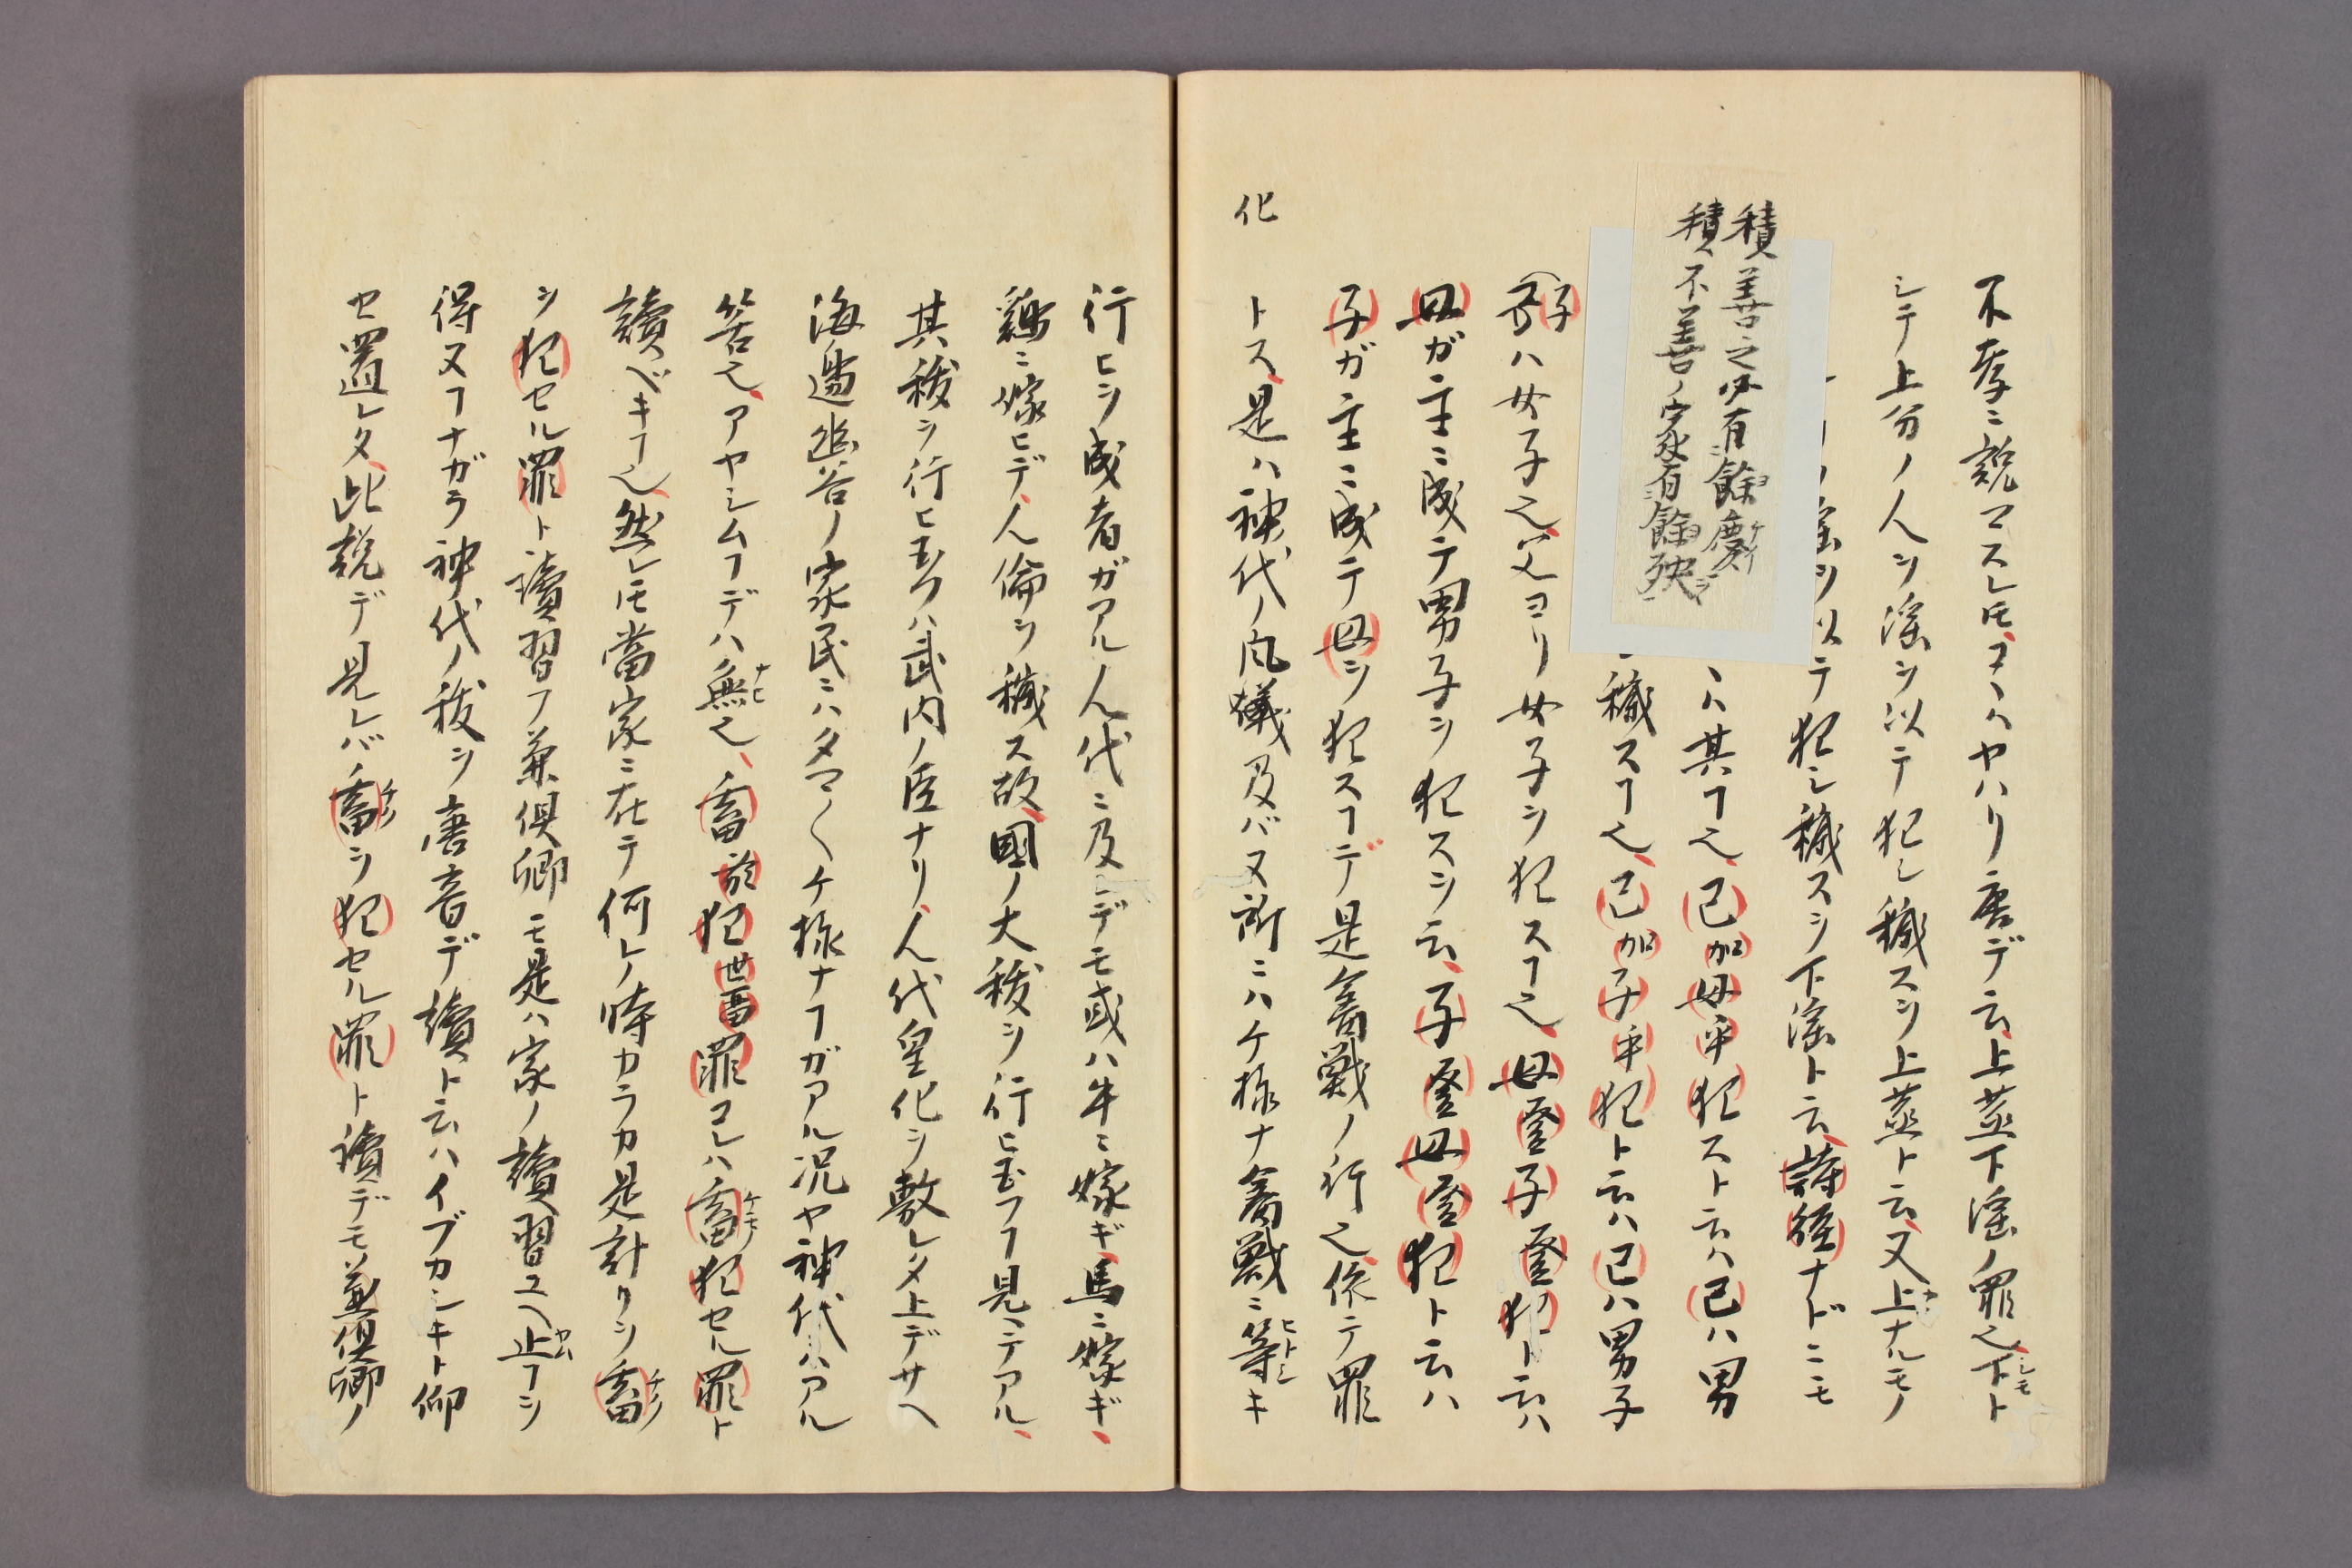 不孝ニ説マスレ𪜈コヽハヤハリ唐デ云上蒸下淫ノ罪也下ト
シテ上分ノ人ヲ淫ヲ以テ犯シ穢スヲ上蒸ト云又上ナルモノ
淫ヲ以テ犯シ穢スヲ下淫ト云詩経ナドニモ
積善之必有餘慶
積不善ノ家有餘殃
ハ其ヿ也己加母乎犯スト云ハ己ハ男
穢スヿ也己加子乎犯ト云ハ己ハ男子
子ハ女子也父ヨリ女子ヲ犯スヿ也母登子登犯ト云ハ
母ガ主ニ成テ男子ヲ犯スヲ云子登母登犯ト云ハ
子ガ主ニ成テ母ヲ犯スヿデ是禽獣ノ行也依テ罪
化
トス是ハ神代ノ風儀及バヌ所ニハケ様ナ禽獣ニ等キ
行ヒヲ成者ガアル人代ニ及デモ或ハ牛ニ嫁ギ馬ニ嫁ギ
鶏ニ嫁ヒデ人倫ヲ穢ス故國ノ大祓ヲ行ヒ玉フヿ見ヘテアル
其祓ヲ行ヒ玉フハ武内ノ臣ナリ人代皇化ヲ敷レタ上デサヘ
海邊幽谷ノ家民ニハタマ〱ケ様ナヿガアル况ヤ神代ハアル
筈也アヤシムヿデハ無也畜於犯世畄罪コレハ畜犯セル罪ト
讀ベキヿ也然レ𪜈當家ニ在テ何レノ時カラカ是計リヲ畜
ヲ犯セル罪ト讀習フ兼倶卿モ是ハ家ノ讀習ユヘ止ヿヲ
得ヌヿナガラ神代ノ祓ヲ唐音デ讀ト云ハイブカシキト仰
セ置レタ此説デ見レバ畜ヲ犯セル罪ト讀デモ兼倶卿ノ